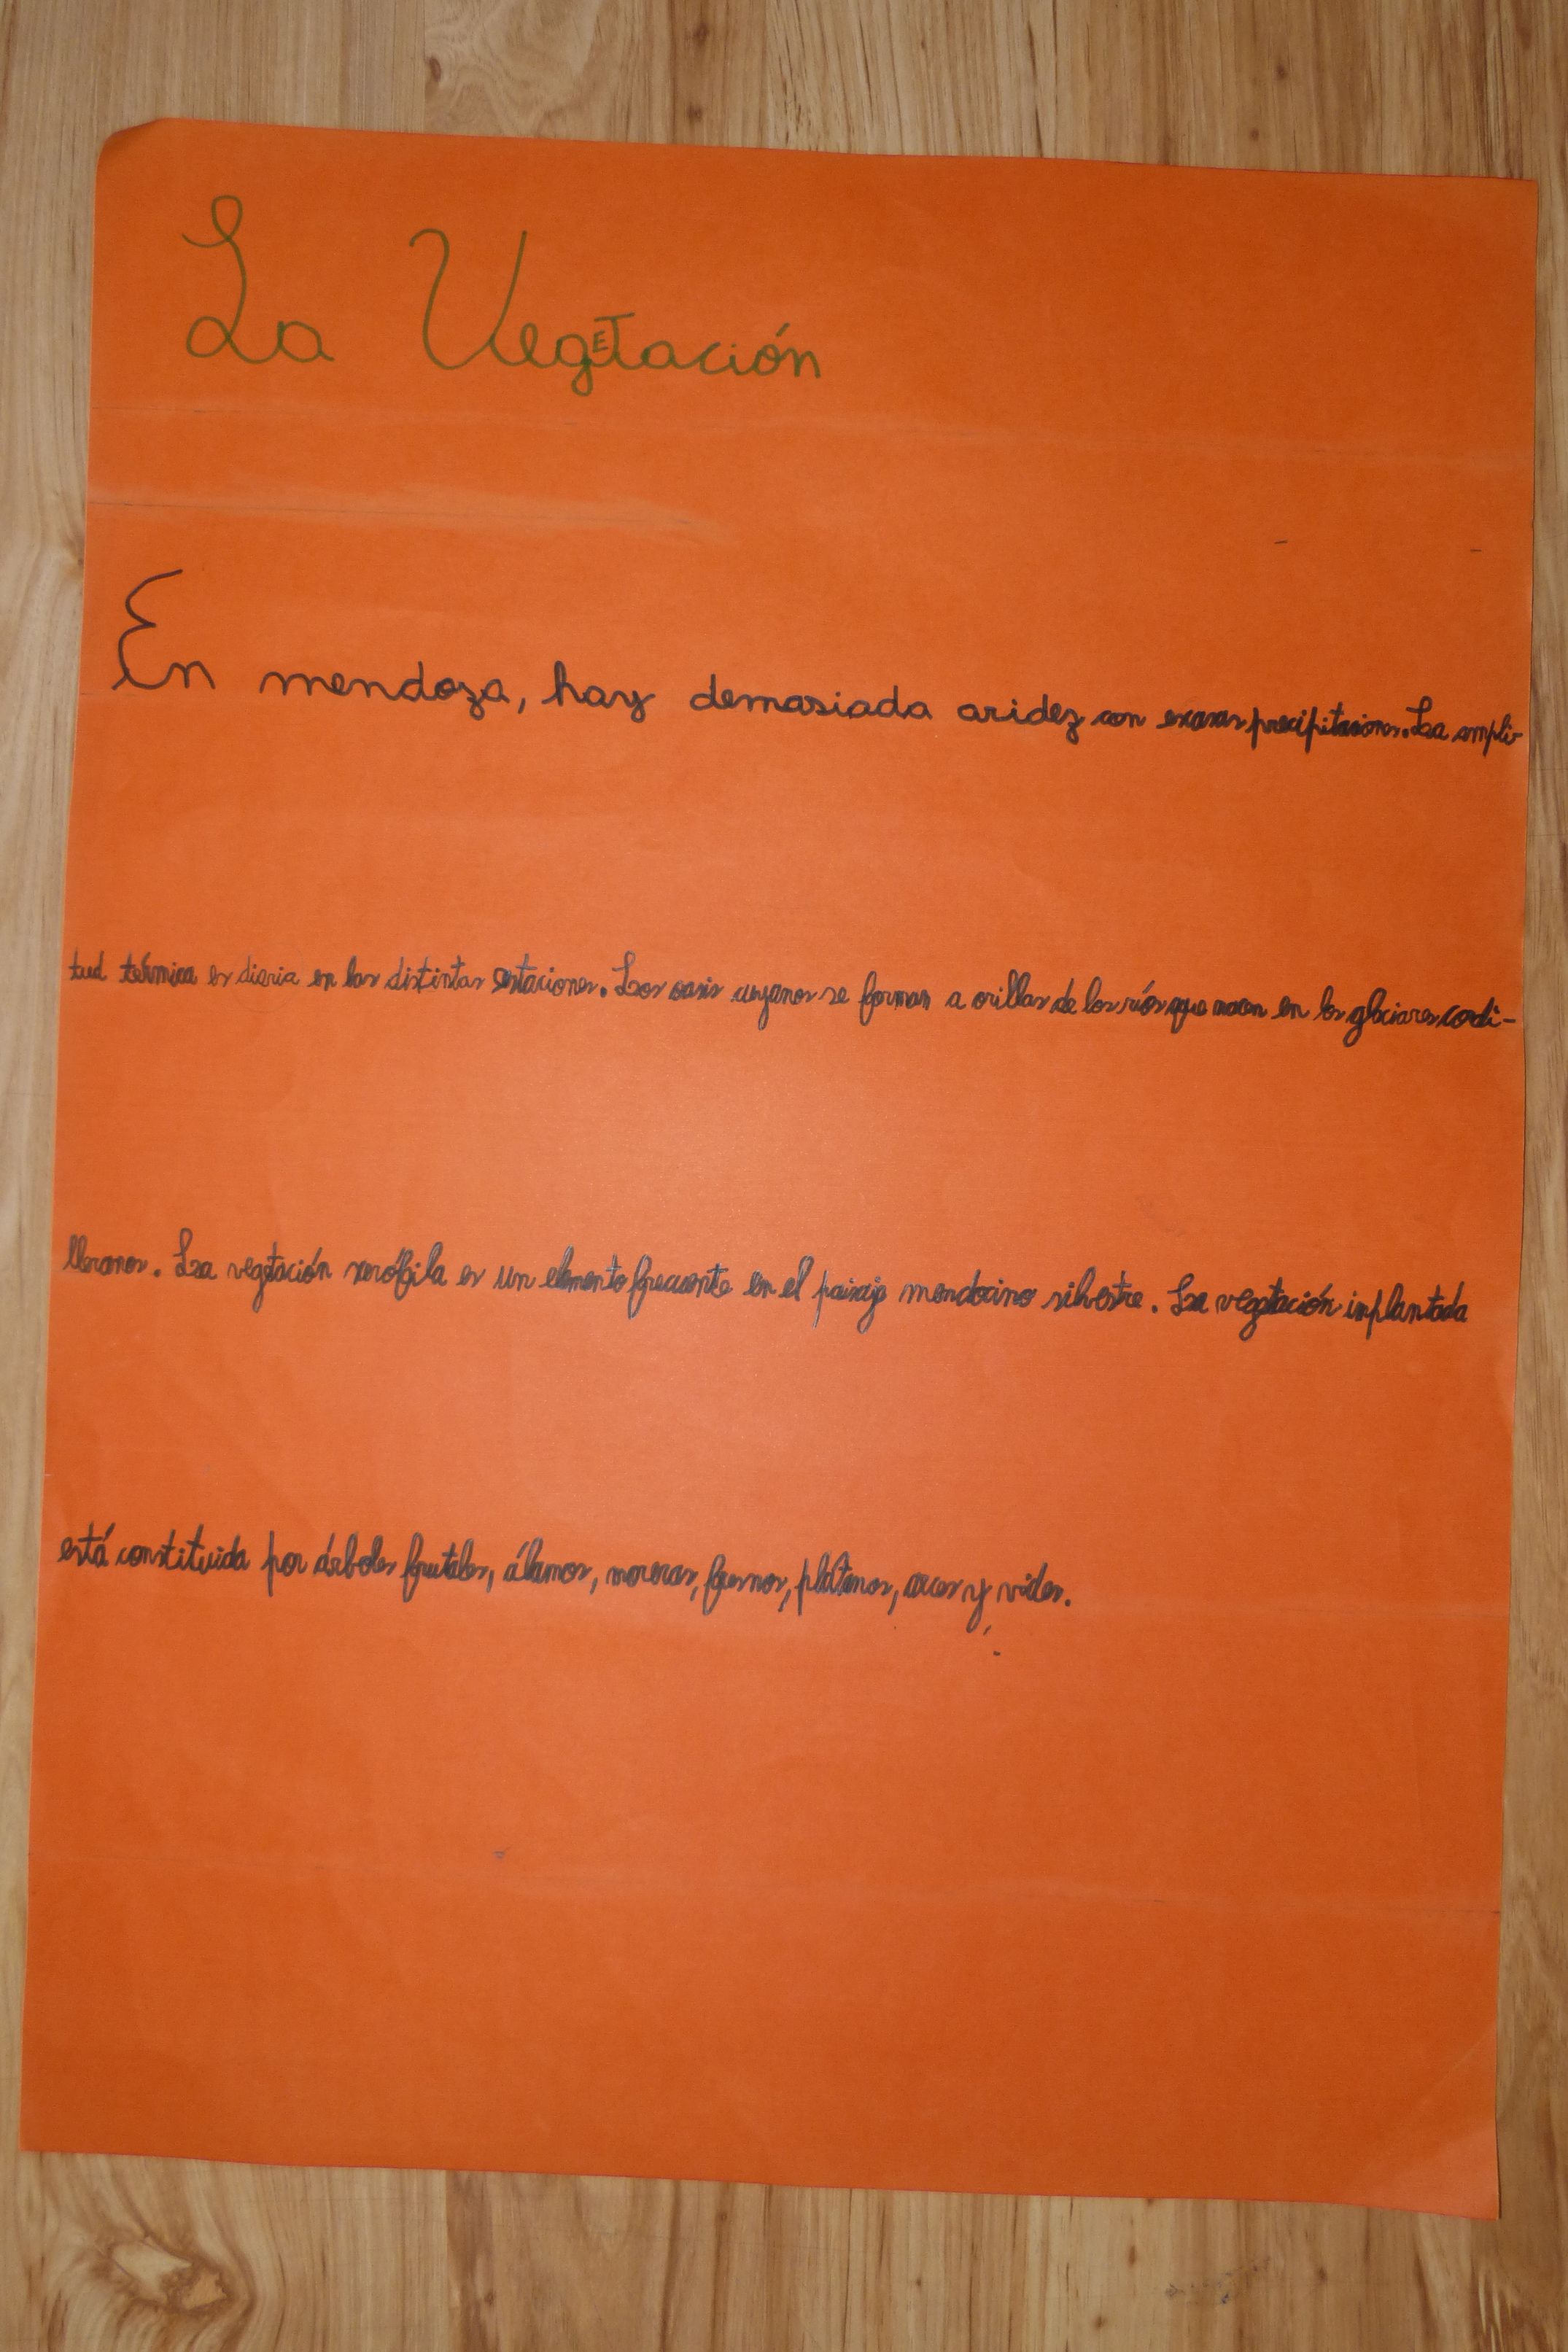 La Vegetación
En mendoza, hay demasiada aridez con escasas precipitaciones. La ampli-
tud térmica es diaria en las distintas estaciones. Los oasis cuyanos se forman a orillas de los ríos que nacen en los glaciares cordi-
lleranos. La vegetación xerófila es un elemento frecuente en el paisaje mendocino silvestre. La vegetación implantada
está constituida por árboles frutales, álamos, moreras, fresnos, plátanos, arces y vides.